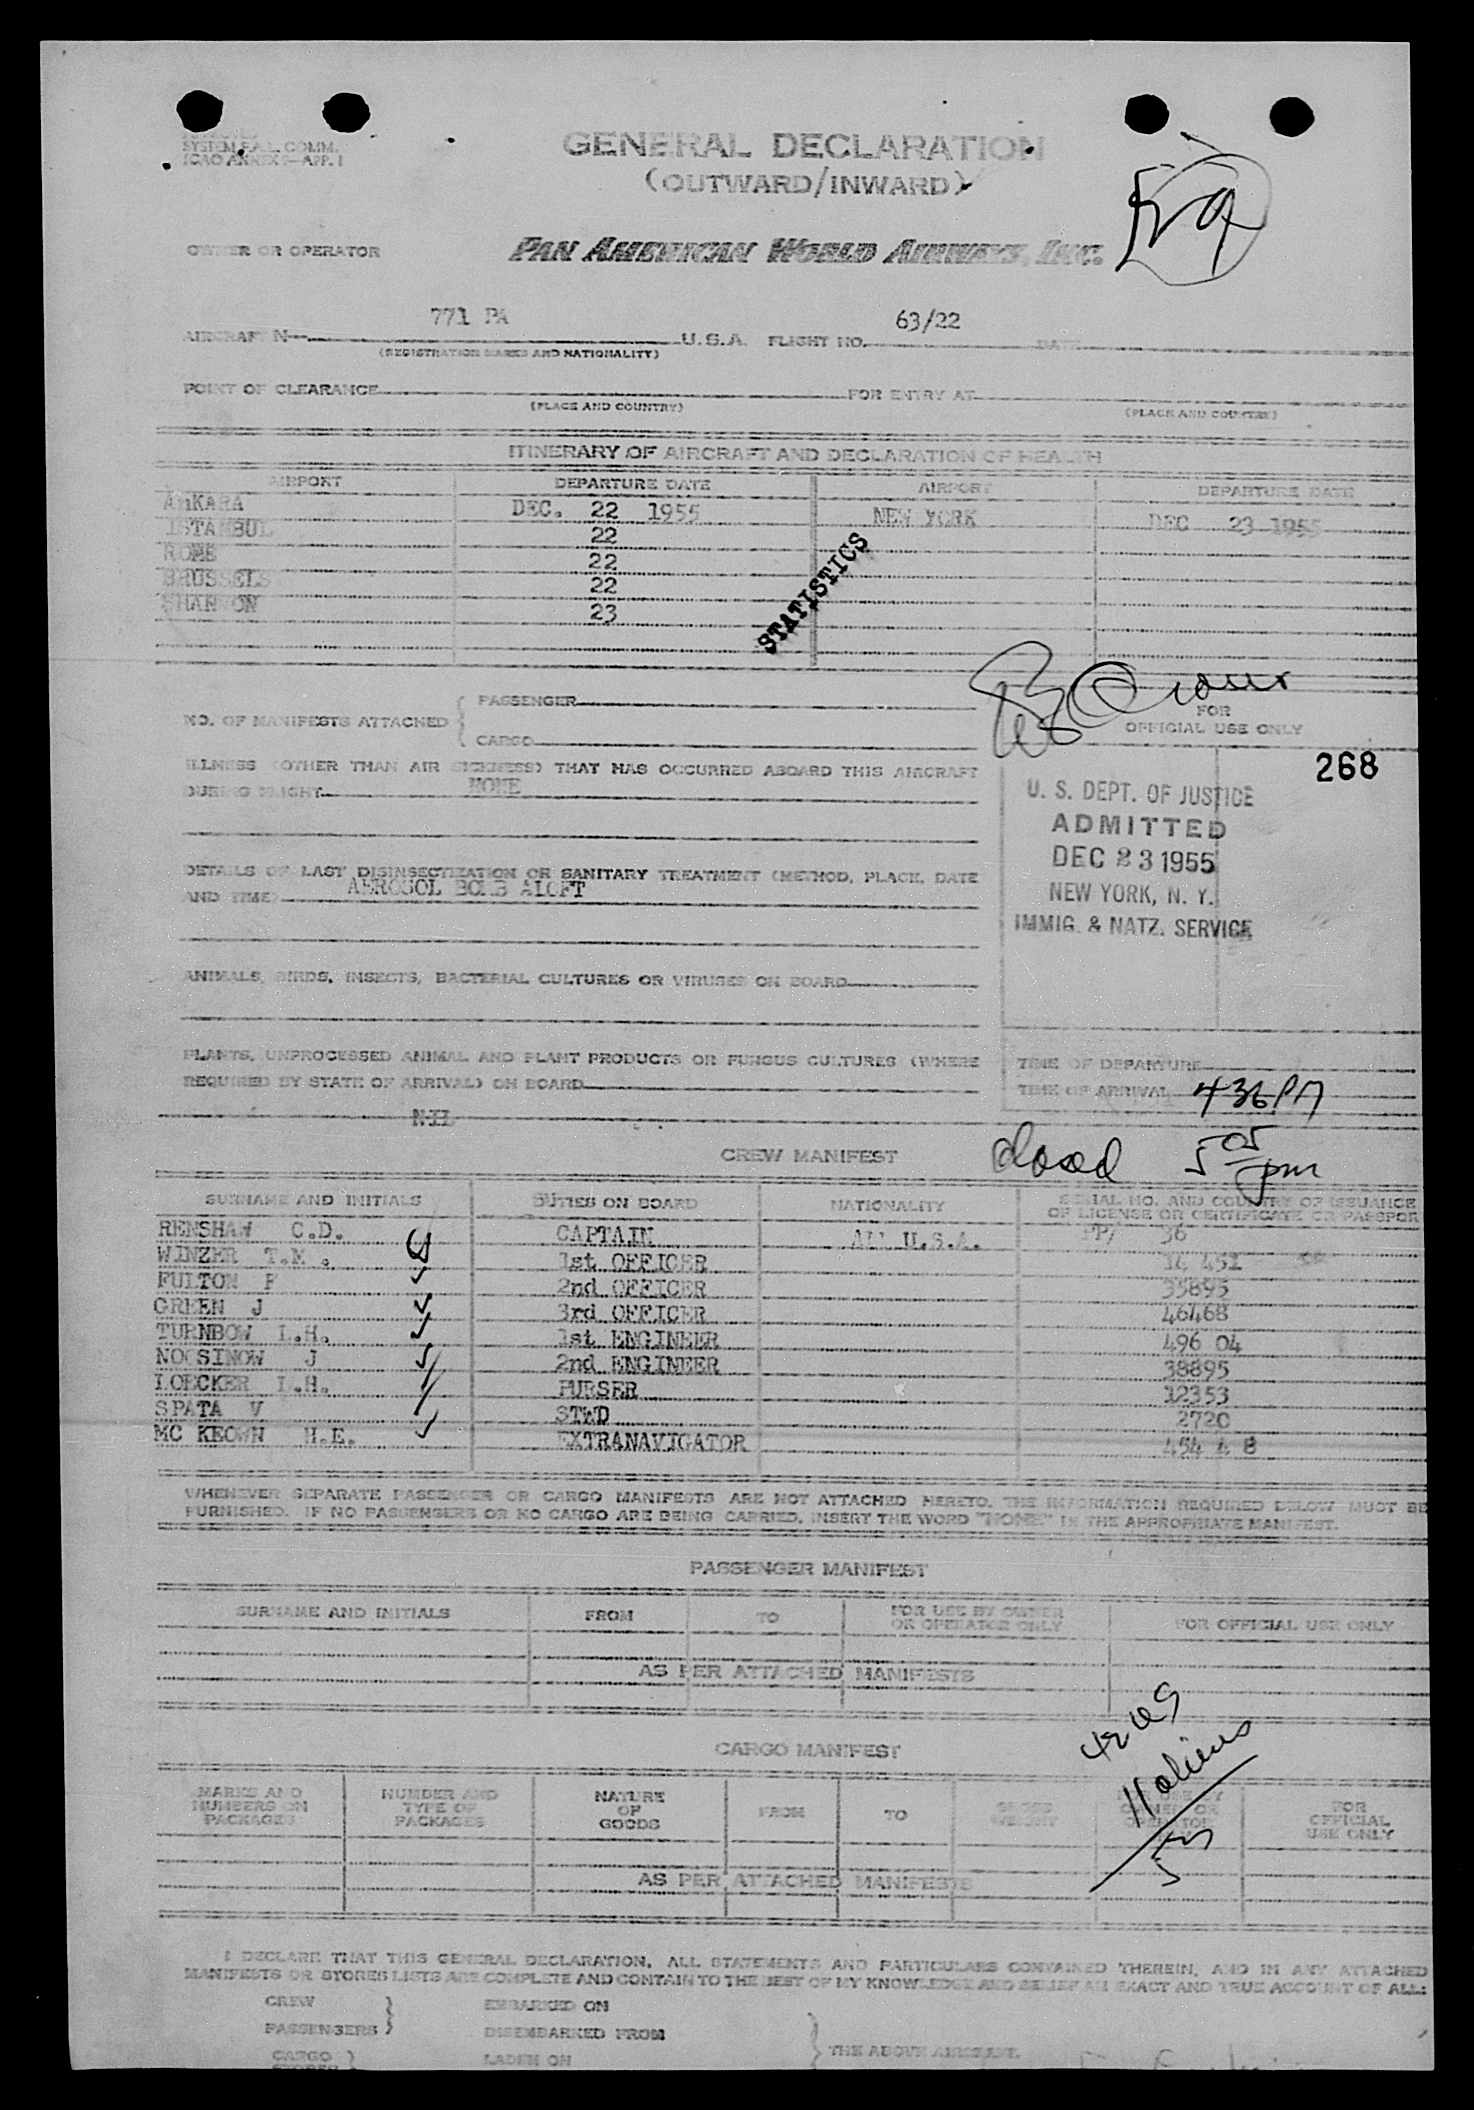 SYSTEM F.A.L. COMM.
ICAO ANNEX 9—APP. 1
GENERAL DECLARATION
(OUTWARD/INWARD)
OWNER OR OPERATOR
PAN AMERICAN WORLD AIRWAYS, INC.
771 PA
63/22
AIRCRAFT N U.S.A. FLIGHT NO. DATE
(REGISTRATION MARKS AND NATIONALITY)
POINT OF CLEARANCE FOR ENTRY AT
(PLACE AND COUNTRY) (PLACE AND COUNTRY)
ITINERARY OF AIRCRAFT AND DECLARATION OF HEALTH
AIRPORT DEPARTURE DATE AIRPORT DEPARTURE DATE
ANKARA DEC. 22 1955 NEW YORK DEC 23 1955
ISTANBUL 22
ROME 22
BRUSSELS 22
SHANNON 23
STATISTICS
NO. OF MANIFESTS ATTACHED { PASSENGER
CARGO
FOR
OFFICIAL USE ONLY
268
ILLNESS (OTHER THAN AIR SICKNESS) THAT HAS OCCURRED ABOARD THIS AIRCRAFT
DURING FLIGHT NONE
U. S. DEPT. OF JUSTICE
ADMITTED
DEC 23 1955
NEW YORK, N. Y.
IMMIG. & NATZ. SERVICE
DETAILS OF LAST DISINSECTIZATION OR SANITARY TREATMENT (METHOD, PLACE, DATE
AND TIME) AEROSOL BOMB ALOFT
ANIMALS, BIRDS, INSECTS, BACTERIAL CULTURES OR VIRUSES ON BOARD
PLANTS, UNPROCESSED ANIMAL AND PLANT PRODUCTS OR FUNGUS CULTURES (WHERE
REQUIRED BY STATE OF ARRIVAL) ON BOARD
NIL
TIME OF DEPARTURE
TIME OF ARRIVAL 436 PM
closed 5 05 pm
CREW MANIFEST
SURNAME AND INITIALS DUTIES ON BOARD NATIONALITY SERIAL NO. AND COUNTRY OF ISSUANCE
OF LICENSE OR CERTIFICATE OR PASSPOR
RENSHAW C.D. CAPTAIN ALL U.S.A. PP/ 36
WINZER T.M. 1st OFFICER 14 451
FULTON F 2nd OFFICER 35895
GREEN J 3rd OFFICER 46468
TURNBOW L.H. 1st ENGINEER 496 04
NOCSINOW J 2nd ENGINEER 38895
LOECKER L.H. PURSER 12353
SPATA V STWD 2720
MC KEOWN H.E. EXTRANAVIGATOR 454 4 8
WHENEVER SEPARATE PASSENGER OR CARGO MANIFESTS ARE NOT ATTACHED HERETO, THE INFORMATION REQUIRED BELOW MUST BE
FURNISHED. IF NO PASSENGERS OR NO CARGO ARE BEING CARRIED, INSERT THE WORD "NONE" IN THE APPROPRIATE MANIFEST.
PASSENGER MANIFEST
SURNAME AND INITIALS FROM TO FOR USE BY OWNER
OR OPERATOR ONLY FOR OFFICIAL USE ONLY
AS PER ATTACHED MANIFESTS
42 US
11 aliens
53
CARGO MANIFEST
MARKS AND
NUMBERS ON
PACKAGES
NUMBER AND
TYPE OF
PACKAGES
NATURE
OF
GOODS
FROM
TO
GROSS
WEIGHT
FOR USE BY
OWNER OR
OPERATOR
FOR
OFFICIAL
USE ONLY
AS PER ATTACHED MANIFESTS
I DECLARE THAT THIS GENERAL DECLARATION, ALL STATEMENTS AND PARTICULARS CONTAINED THEREIN, AND IN ANY ATTACHED
MANIFESTS OR STORES LISTS ARE COMPLETE AND CONTAIN TO THE BEST OF MY KNOWLEDGE AND BELIEF AN EXACT AND TRUE ACCOUNT OF ALL:
CREW } EMBARKED ON
PASSENGERS } DISEMBARKED FROM
CARGO } LADEN ON } THE ABOVE AIRCRAFT.
STORES